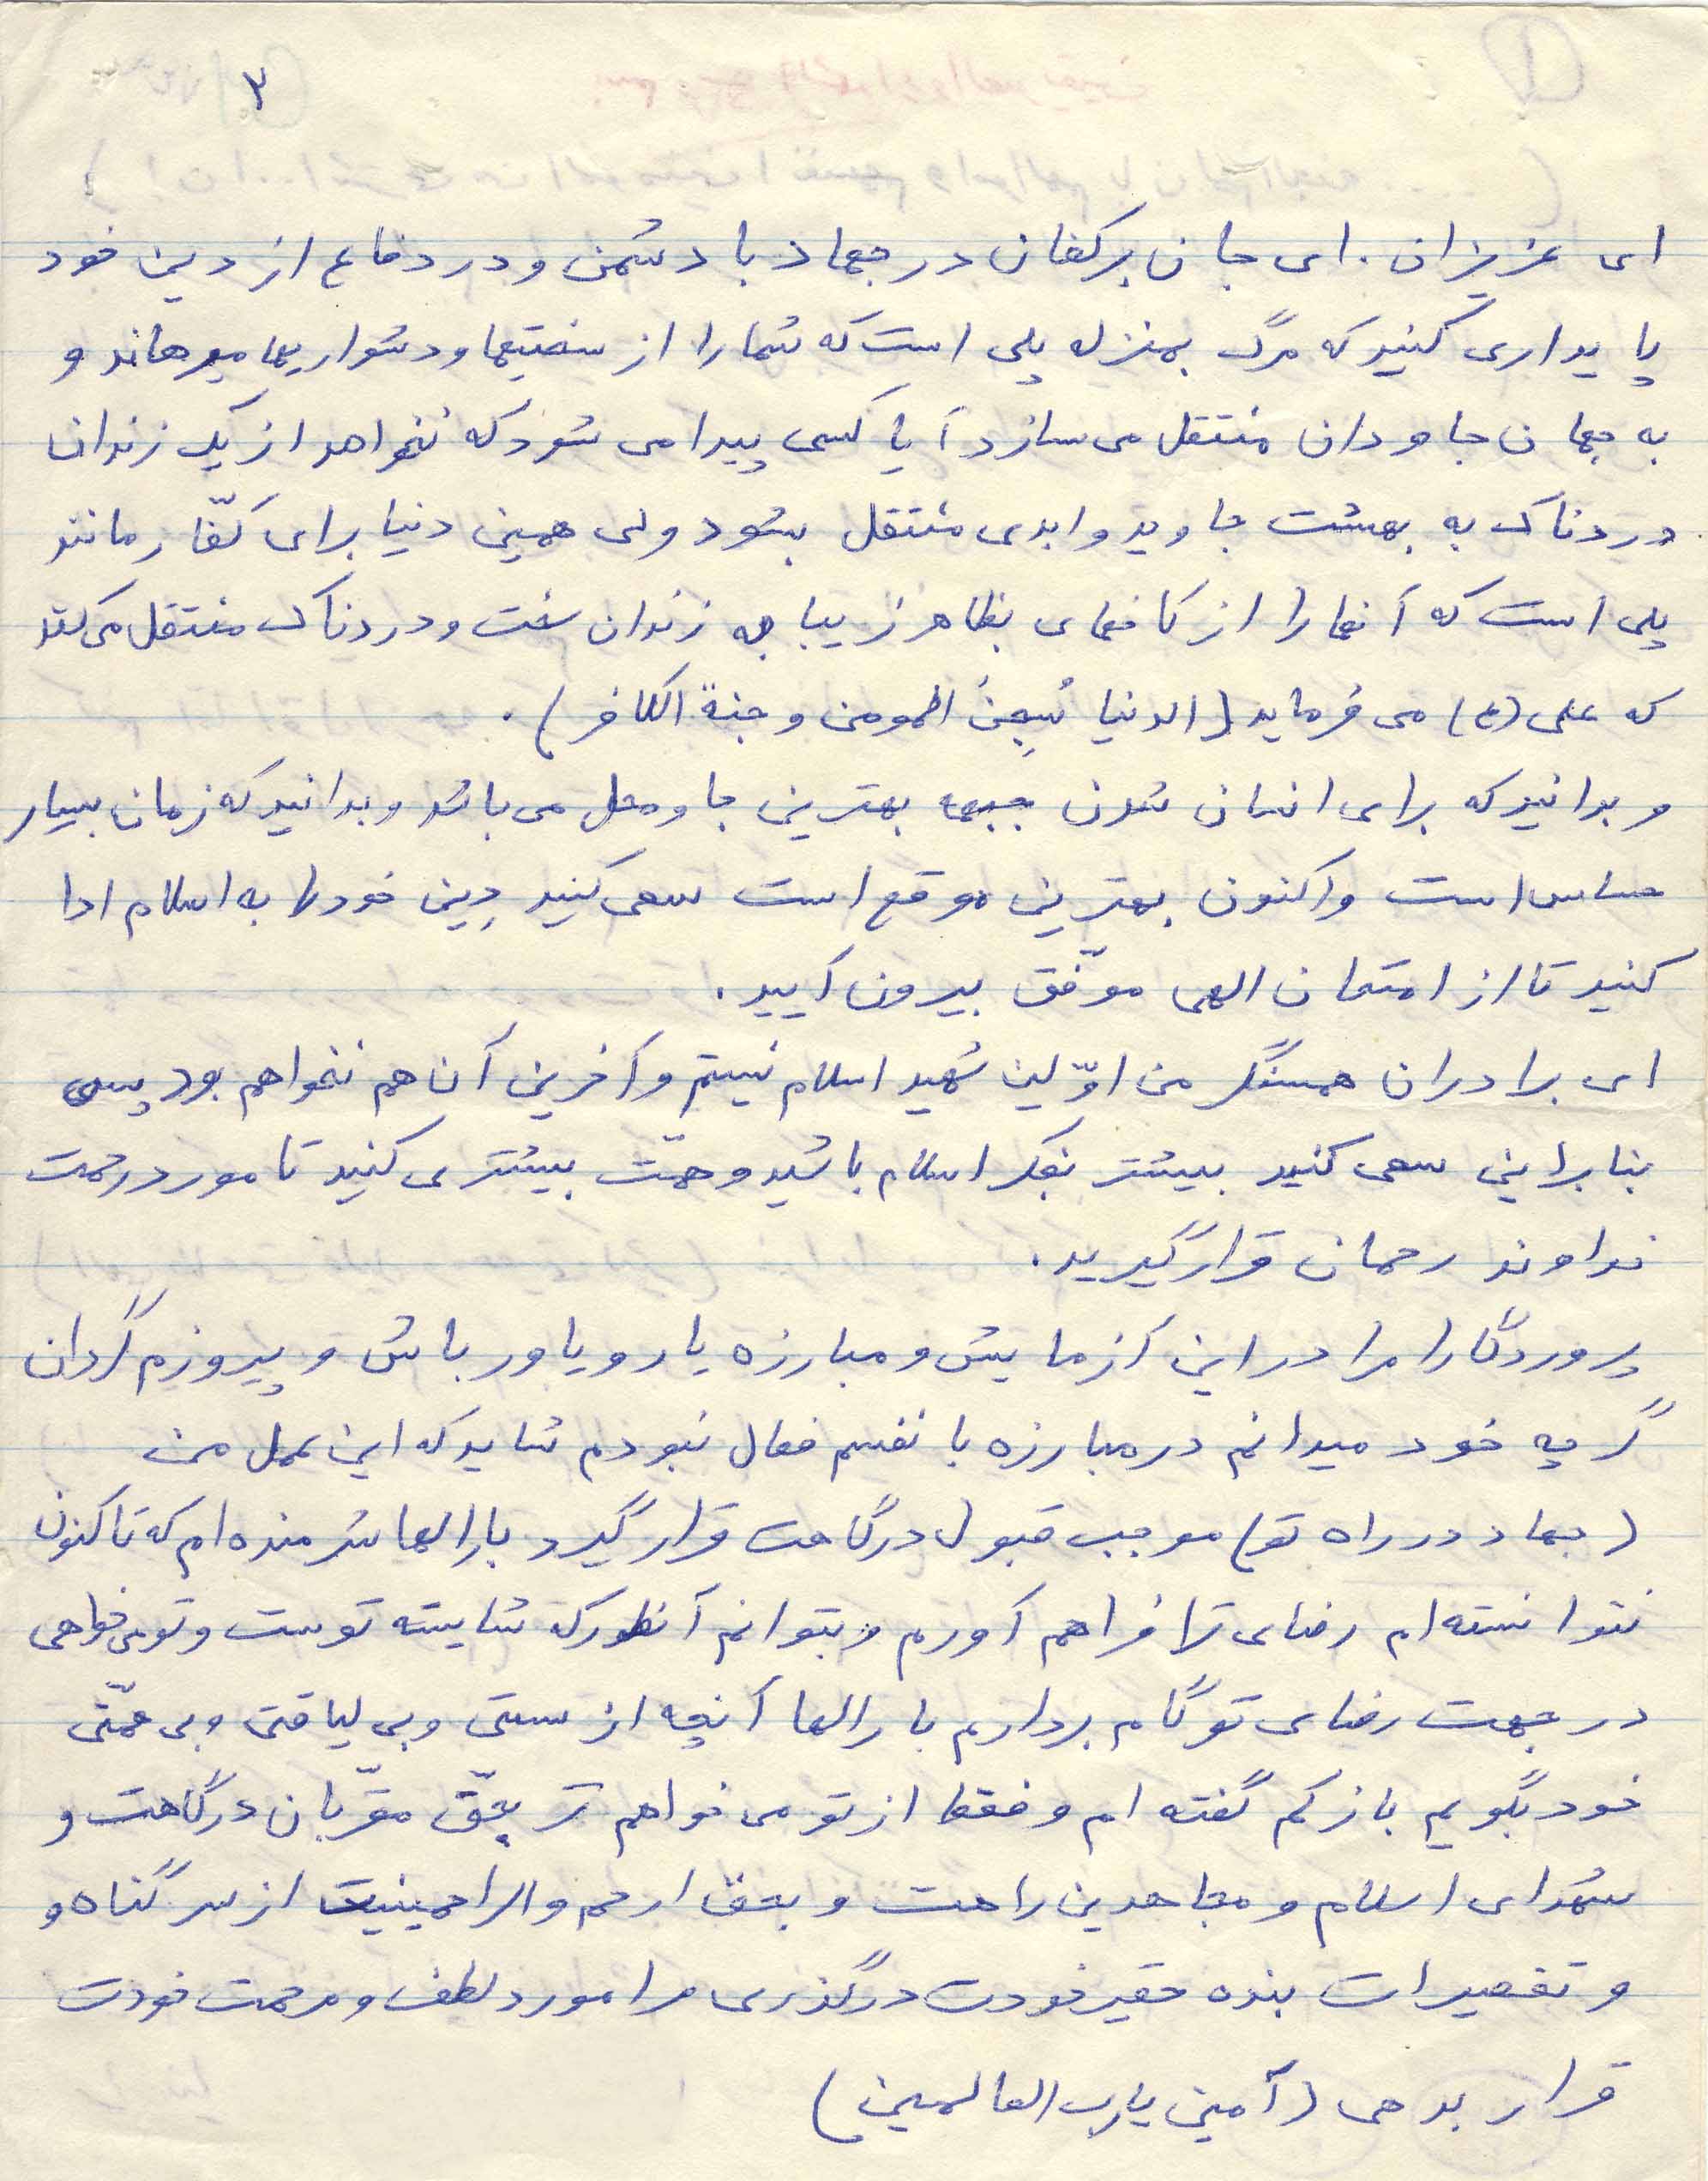 ۲
ای عزیزان. ای جان برکفان در جهاد با دشمن و در دفاع از دین خود
پایداری کنید که مرگ بمنزله پلی است که شما را از سختیها و دشواریها میرهاند و
به جهان جاودان منتقل می سازد آیا کسی پیدا می شود که نخواهد از یک زندان
دردناک به بهشت جاوید و ابدی منتقل بشود ولی همین دنیا برای کفّار مانند
پلی است که آنها را از کاخهای بظاهر زیبا به زندان سخت و دردناک منتقل می کند
که علی (ع) می فرماید (الدنیا سِجنُ المومن و جنة الکافر).
و بدانید که برای انسان شدن جبهه بهترین جا و محل می باشد و بدانید که زمان بسیار
حساس است و اکنون بهترین موقع است سعی کنید دِین خود را به اسلام ادا
کنید تا از امتحان الهی موفّق بیرون آیید.
ای برادران همسنگر من اوّلین شهید اسلام نیستم و آخرین آن هم نخواهم بود پس
بنابراین سعی کنید بیشتر بفکر اسلام باشید و همّت بیشتری کنید تا مورد رحمت
خداوند رحمان قرار گیرید.
پروردگارا مرا در این آزمایش و مبارزه یار و یاور باش و پیروزم گردان
گرچه خود میدانم در مبارزه با نفسم فعال نبودم شاید که این عمل من
(جهاد در راه تو) موجب قبول درگاهت قرار گیرد بارالها شرمنده ام که تاکنون
نتوانسته ام رضای ترا فراهم آورم و بتوانم آنطور که شایسته توست و تو می خواهی
در جهت رضای تو گام بردارم بارالها آنچه از سستی و بی لیاقتی و بی همّتی
خود بگویم باز کم گفته ام و فقط از تو می خواهم بحّق مقرّبان درگاهت و
شهدای اسلام و مجاهدین راهت و بحق ارحم والراحمینیت از سر گناه و
و تقصیرات بنده حقیر خودت درگذری مرا مورد لطف و مرحمت خودت
قرار بدهی (آمین یارب العالمین)